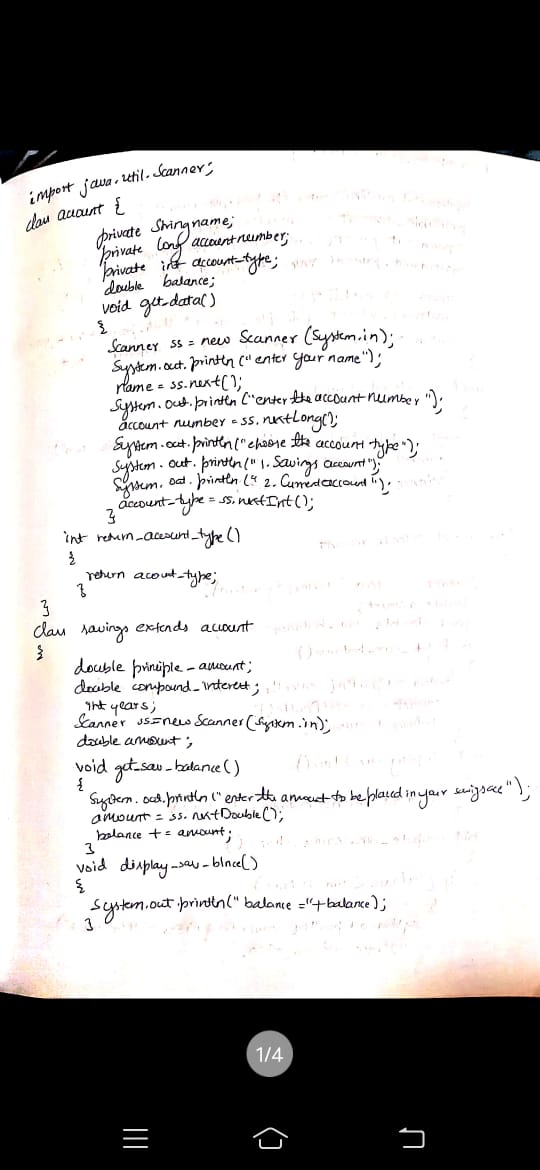 import java.util.Scanner;
class account {
private String name;
private long account number;
private int account-type;
double balance;
void get-data()
{
Scanner ss = new Scanner (System.in);
System.out.println ("enter your name");
name = ss.next();
System.out.println ("enter the account number");
account number = ss.nextLong();
System.out.println ("choose the account type");
System.out.println (" 1. Savings account");
System.out.println (" 2. Current account");
account-type = ss.nextInt();
}
int return-account-type ()
{
return acount-type;
}
}
class savings extends account
{
double principle-amount;
double compound-interest;
int years;
Scanner ss = new Scanner (System.in);
double amount;
void get-sav-balance()
{
System.out.println ("enter the amount to be placed in your");
amount = ss.nextDouble();
balance += amount;
}
void display-sav-blnce()
{
System.out.println (" balance ="+balance);
}
1/4